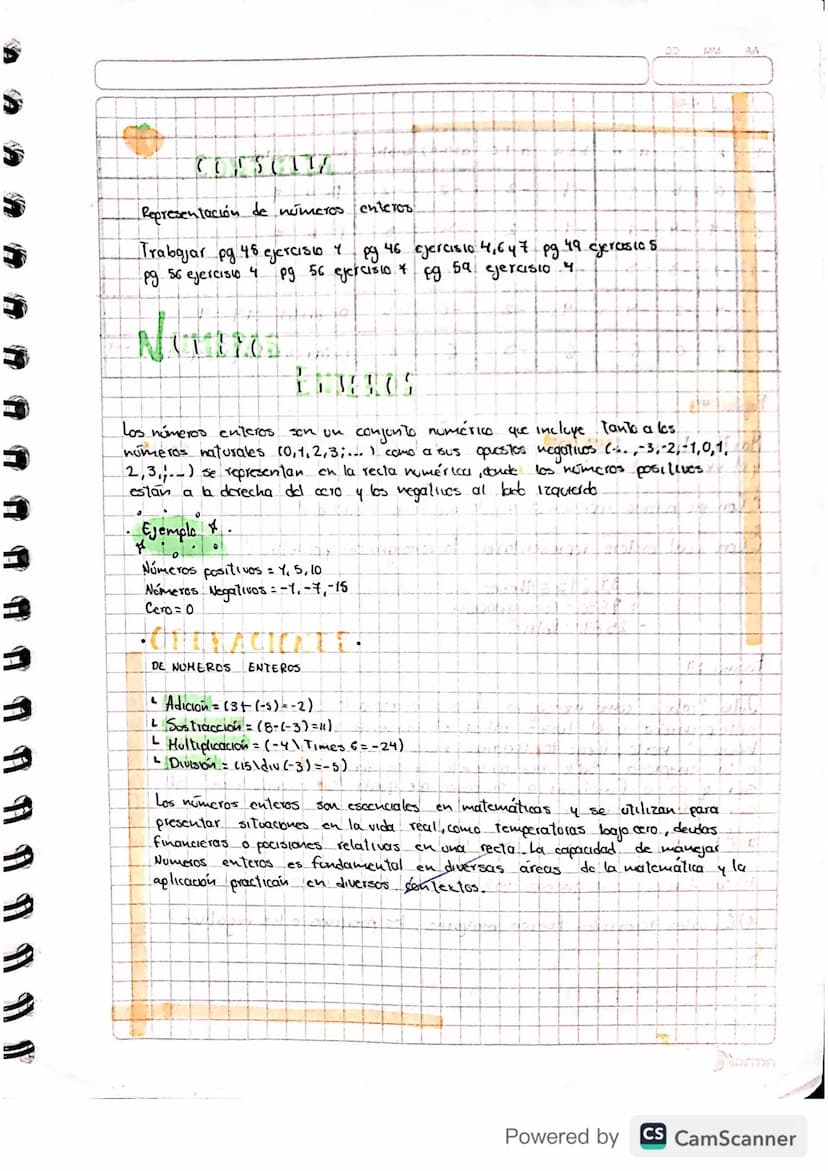 DD MM AA
CONSULTA
Representación de números enteros
Trabajar pg 45 ejercisio 4 pg 46 ejercisio 4,6 y 7 pg 49 ejercisio 5
pg 56 ejercisio 4 pg 56 ejercisio 7 pg 59 ejercisio 4
NUMEROS
ENTEROS
Los números enteros son un conjunto numérico que incluye Tanto a los
números naturales (0,1,2,3;...) como a sus opuestos negativos (..., -3,-2,-1,0,1,
2,3,;...) se representan en la recta numérica ,donde los números positivos
están a la derecha del cero y los negativos al lado izquierdo
Ejemplo
Números positivos = 1, 5, 10
Números Negativos = -1, -7, -15
Cero = 0
OPERACIONES
DE NUMEROS ENTEROS
Adición = (3+(-5)=-2)
Sostracción = (8-(-3)=11)
Multiplicación = (-4\Times 6=-24)
División = (15\div(-3)=-5)
Los números enteros son escenciales en matemáticas y se utilizan para
presentar situaciones en la vida real, como Temperatoras bajo cero, deudas
financieras o pocisiones relativas en una recta. La capacidad de manejar
Numeros enteros es fundamental en diversas áreas de la matemática y la
aplicación practican en diversos contextos.
Norma
Powered by CS CamScanner